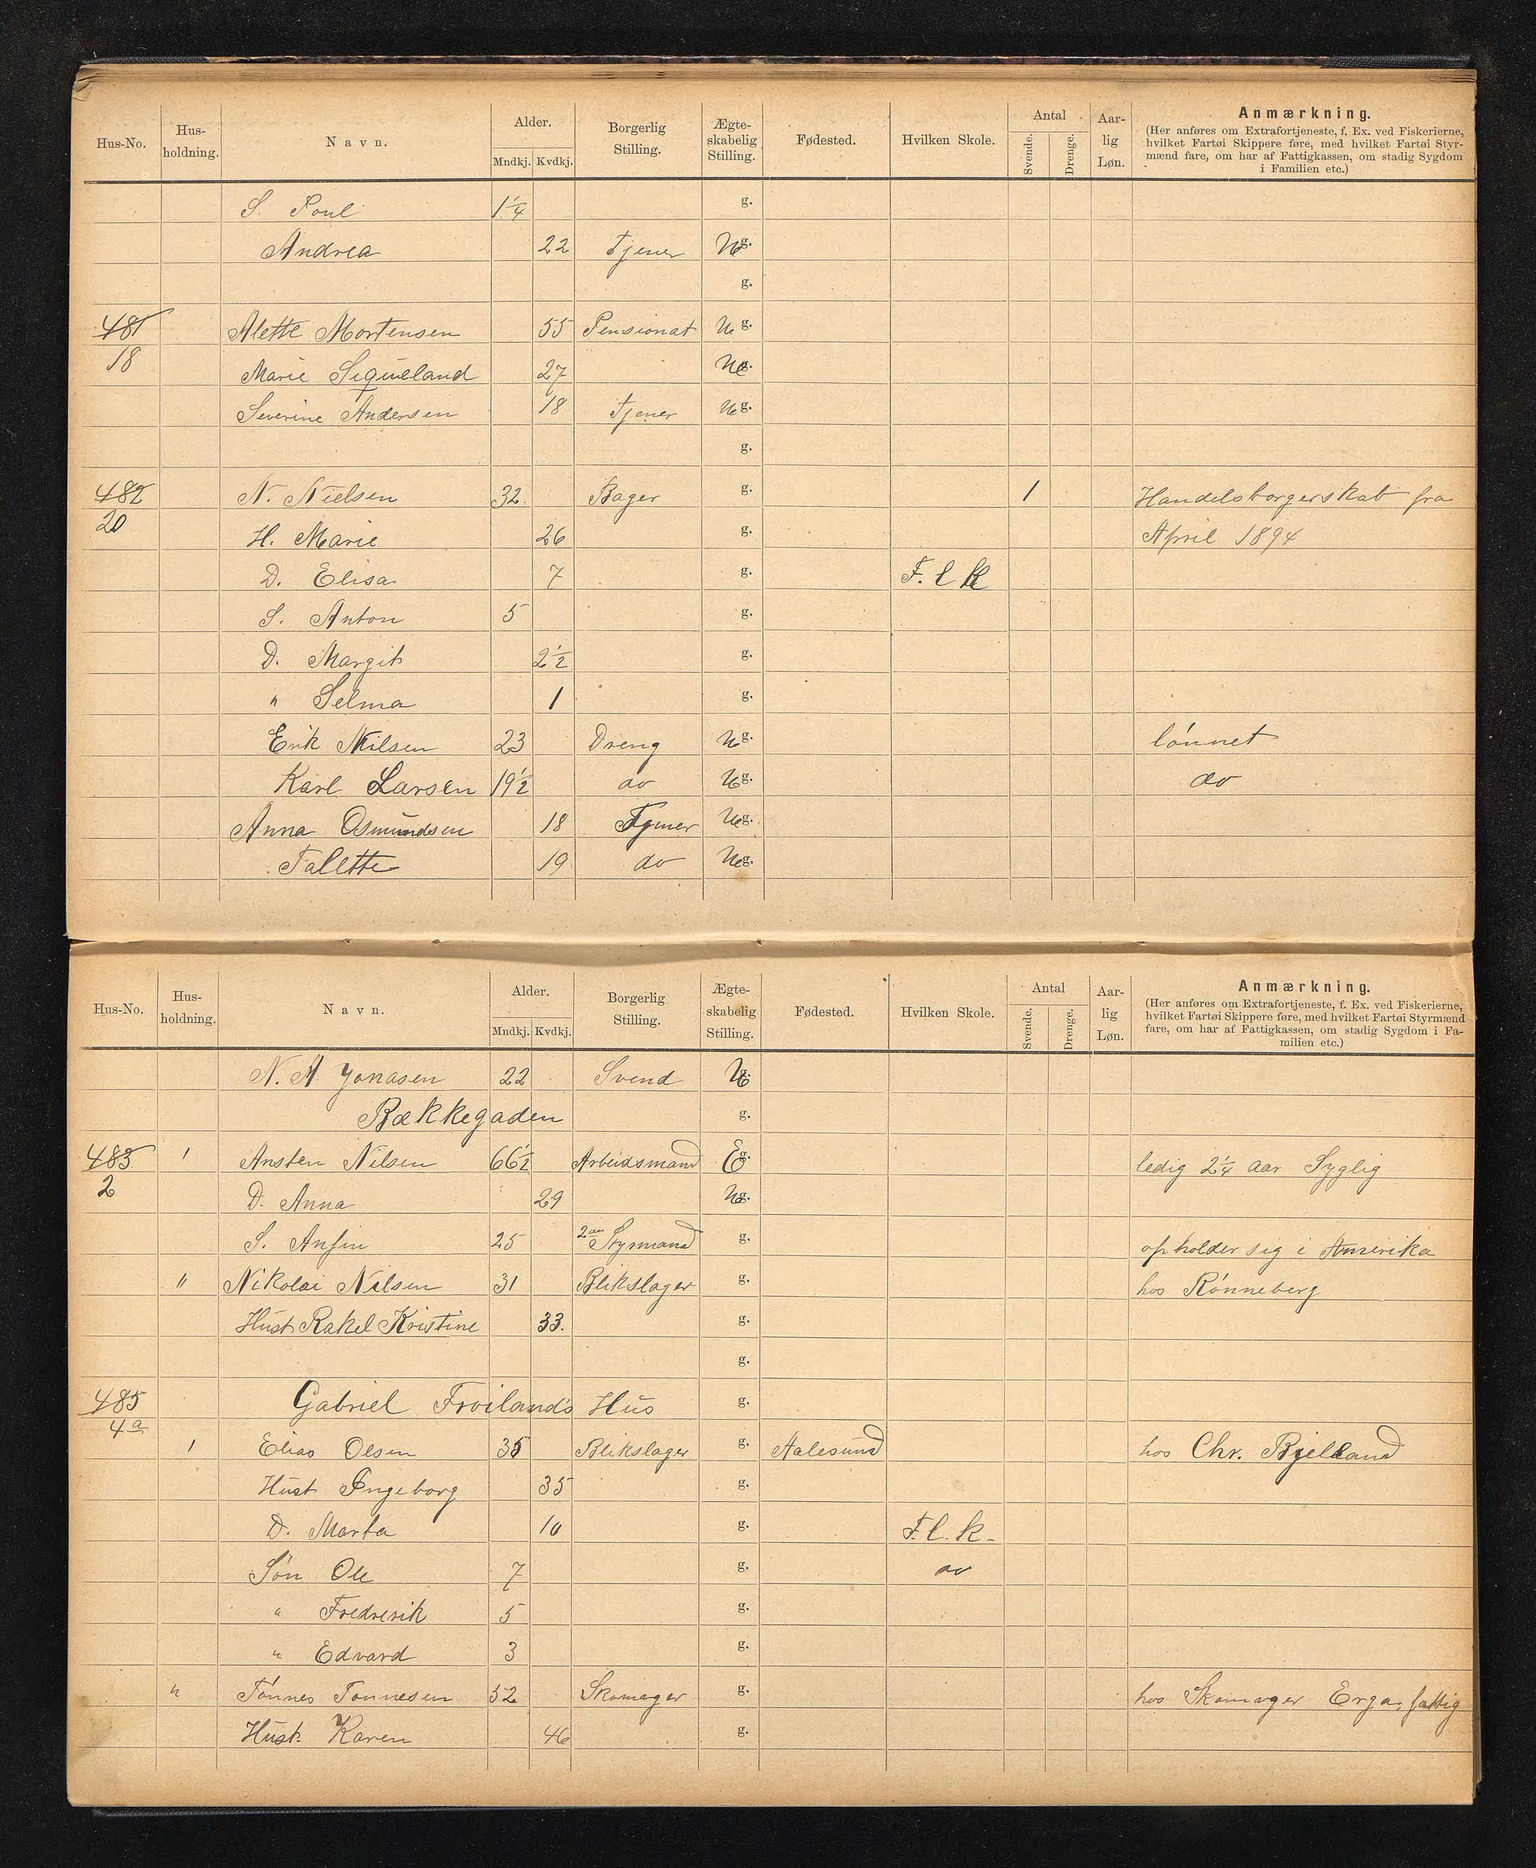 Hus-No. Hus-holdning. Navn. Alder. Mndkj. Kvdkj. Borgerlig Stilling. Ægte-skabelig Stilling. Fødested. Hvilken Skole. Antal Svende. Drenge. Aar-lig Løn. Anmærkning.
(Her anføres om Extrafortjeneste, f. Ex. ved Fiskerierne,
hvilket Fartøi Skippere føre, med hvilket Fartøi Styr-
mænd fare, om har af Fattigkassen, om stadig Sygdom
i Familien etc.)
S. Poul 1¼ g.
Andrea 22 Tjener U g.
g.
481 Alette Mortensen 55 Pensionat U g.
18 Marie Sequeland 27 U g.
Severine Andersen 18 Tjener U g.
g.
482 N. Nielsen 32. Bager g. 1 Handelsborgerskab fra
20 H. Marie 26 g. April 1894
D. Elisa 7 g. F. l k
S. Anton 5 g.
D. Margit 2½ g.
" Selma 1 g.
Erik Nilsen 23 Dreng U g. lønnet
Karl Larsen 19½ do U g. do
Anna Osmundsen 18 Tjener U g.
Talette 19 do U g.
Hus-No. Hus-holdning. Navn. Alder. Mndkj. Kvdkj. Borgerlig Stilling. Ægte-skabelig Stilling. Fødested. Hvilken Skole. Antal Svende. Drenge. Aar-lig Løn. Anmærkning.
(Her anføres om Extrafortjeneste, f. Ex. ved Fiskerierne,
hvilket Fartøi Skippere føre, med hvilket Fartøi Styrmænd
fare, om har af Fattigkassen, om stadig Sygdom i Fa-
milien etc.)
N. A Jonasen 22 Svend U g.
Bækkegaden g.
483 1 Ansten Nilsen 66½ Arbeidsmand E g. ledig 2¼ aar Syglig
2 D. Anna 29 U g.
S. Anfin 25 2den Styrmand g. opholder sig i Amerika
" Nikolai Nilsen 31 Blikslager g. hos Rønneberg
Hust Rakel Kristine 33. g.
g.
485 Gabriel Froilands Hus g.
4a
1 Elias Olsen 35 Blikslager g. Aalesund hos Chr. Bjelland
Hust Ingeborg 35 g.
D. Marta 10 g. F. l. k.
Søn Ole 7 g. do
" Fredrerik 5 g.
" Edvard 3 g.
" Tønnes Tonnesen 52 Skomager g. hos Skomager Erga, fattig
Hust. Karen 46 g.